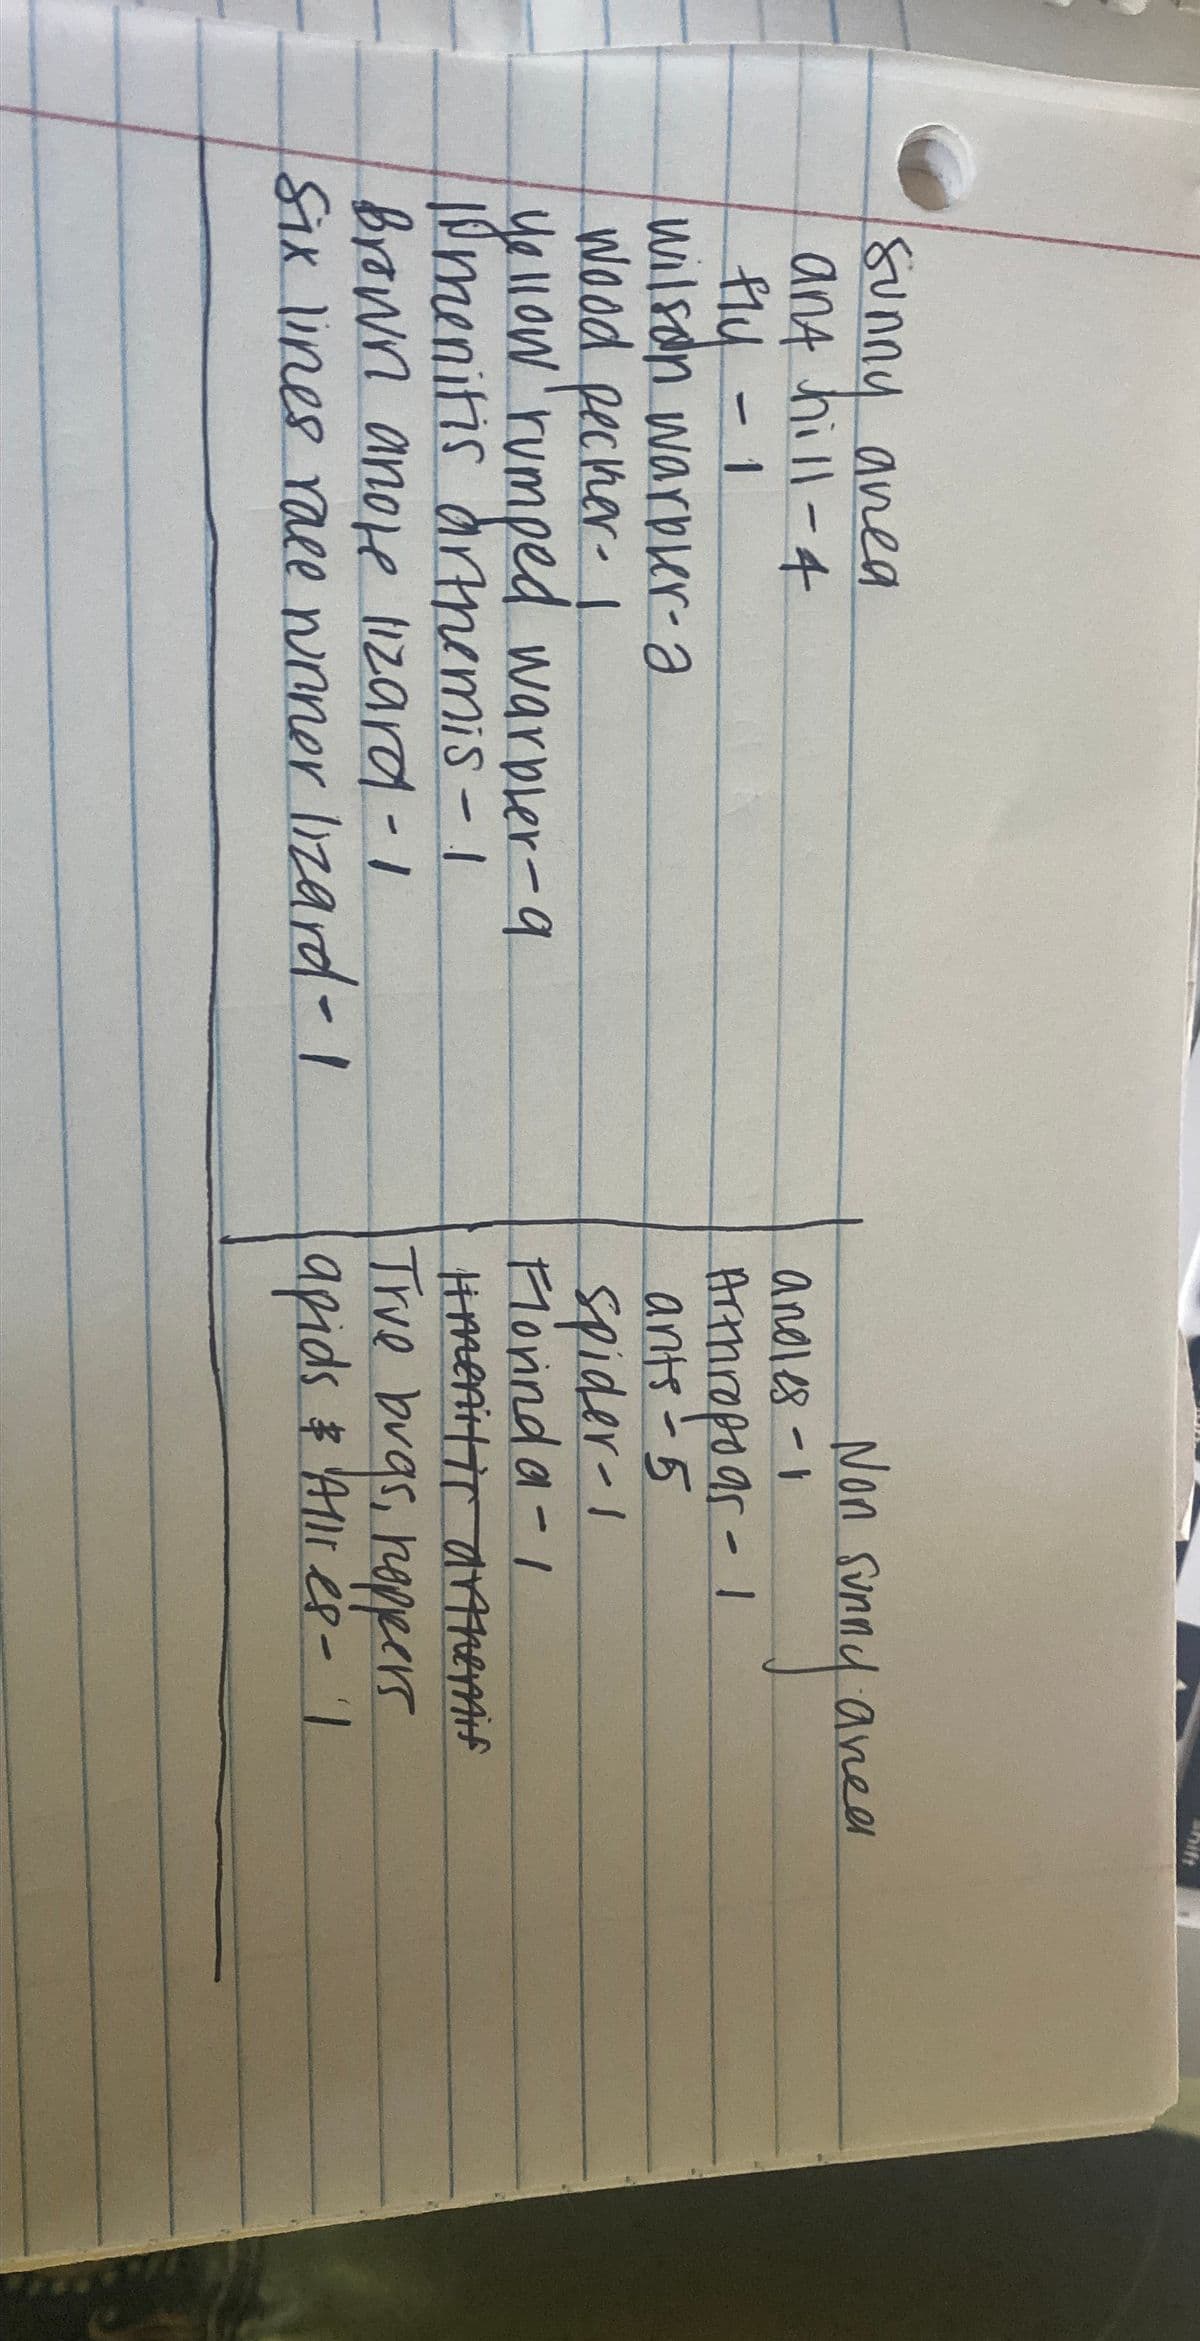 Sunny area
ant hill - 4
fly - 1
wilson warbler - 2
wood pecker - 1
yellow rumped warbler - 9
Himenitis arthemis - 1
Brown anole lizard - 1
Six lines race runner lizard - 1
Non sunny area
anoles - 1
Arthropods - 1
ants - 5
Spider - 1
Florinda - 1
Himenitis arthemis
True bugs, hoppers
apids & Allies - 1
shift